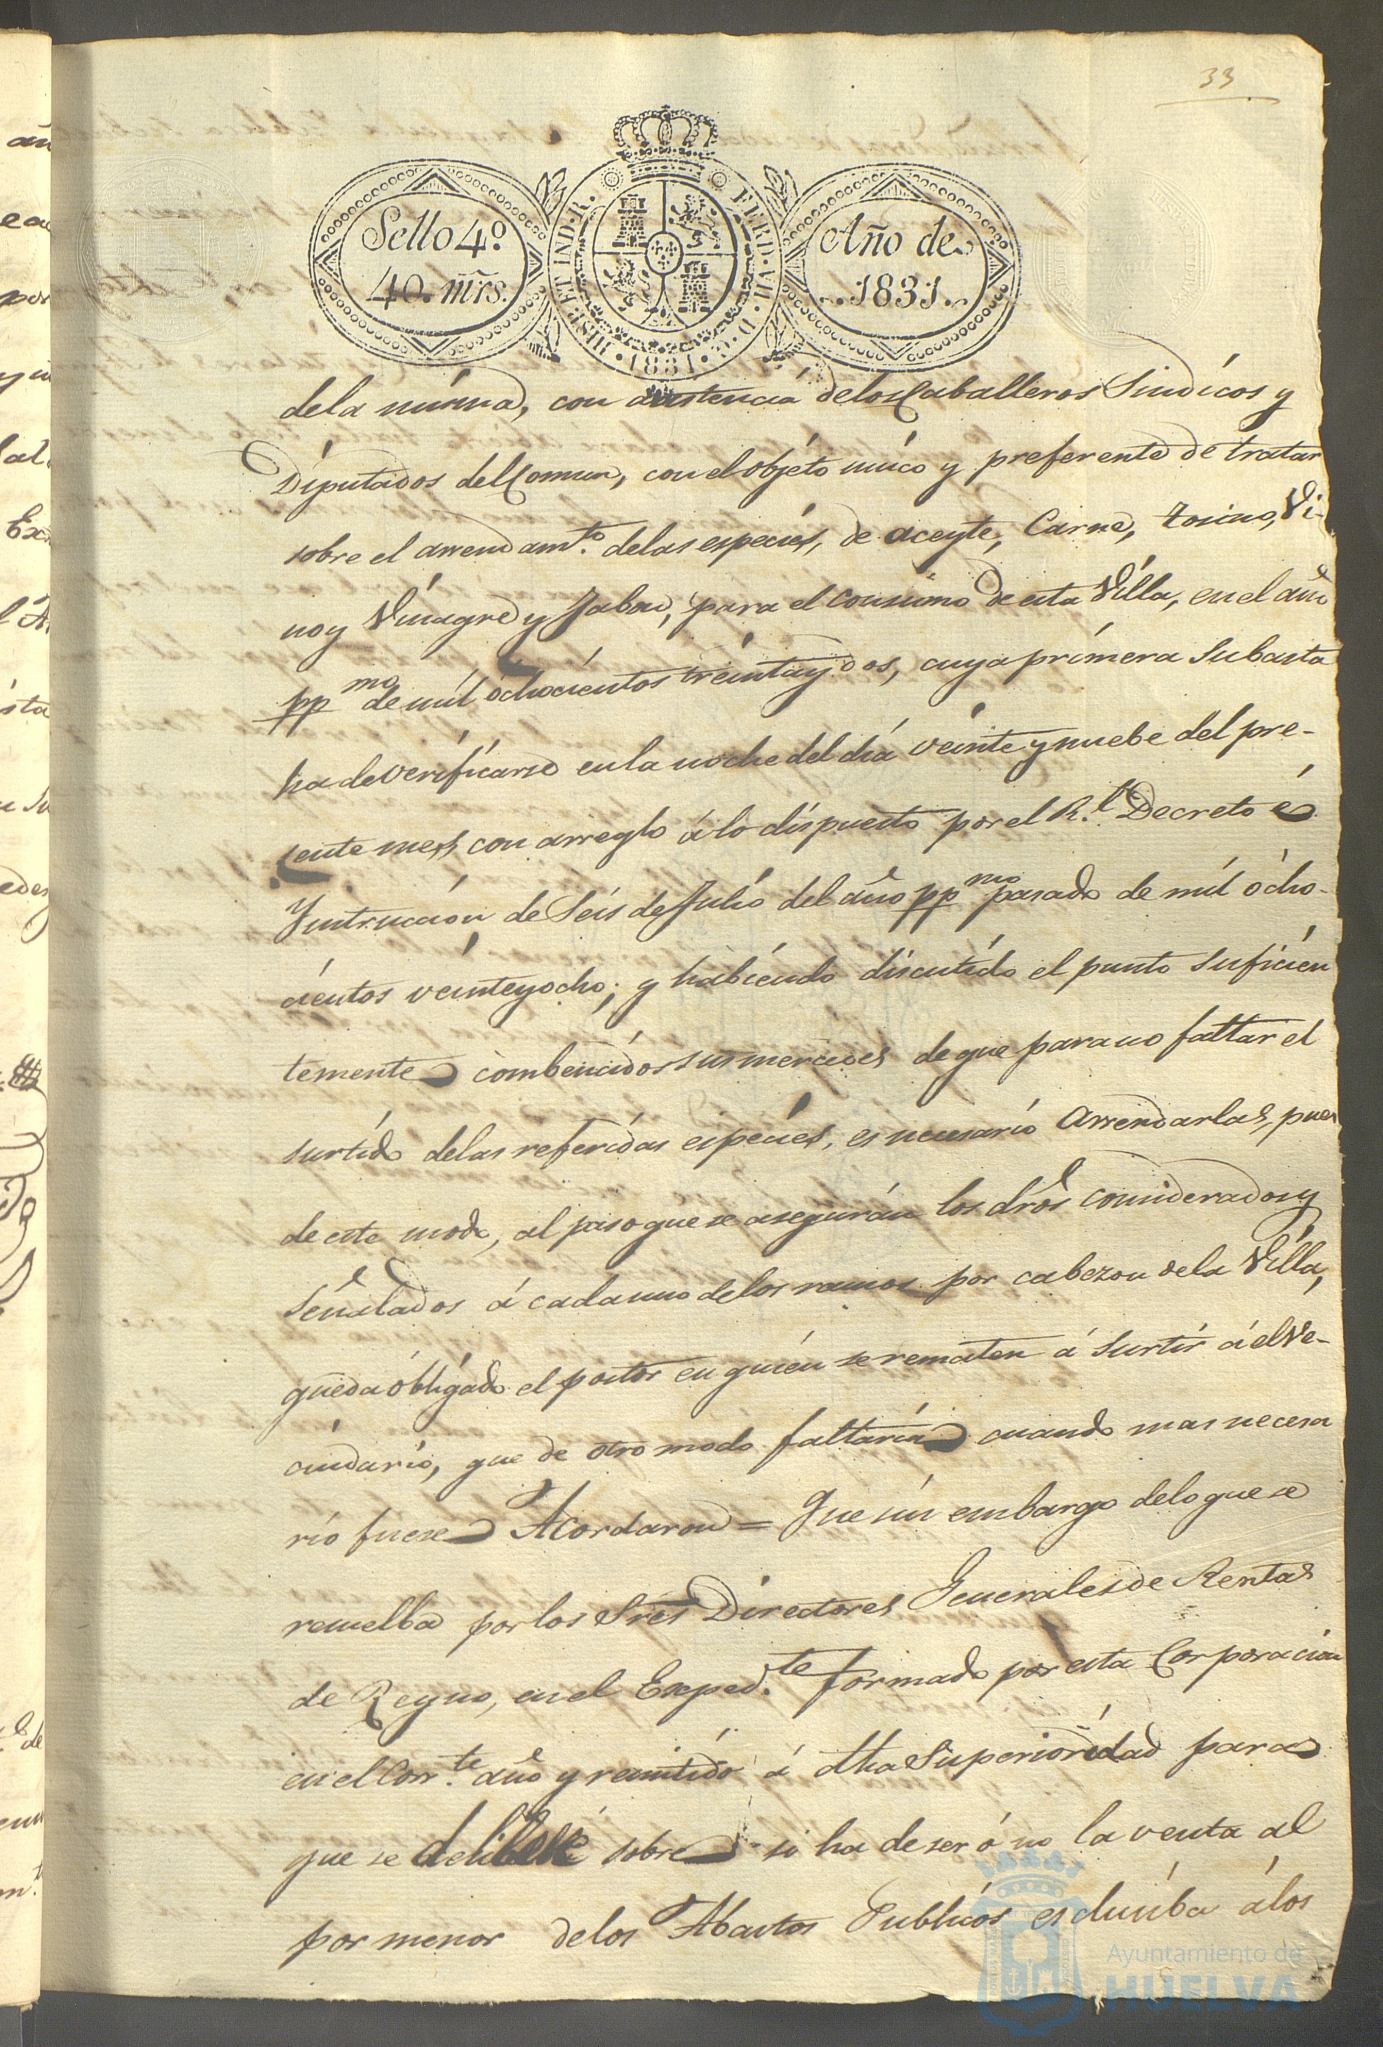 33
Sello 4º
40. mrs.
HISP. ET IND. R. FERD. VII. D. G. 1831.
Año de
1831.
de la misma, con asistencia de los Caballeros Sindicos y
Diputados del Comun, con el objéto unico y preferente de tratar
sobre el arrendamto. de las especies, de aceyte, Carne, tosino, Vi-
no y Vinagre y Jabon, para el consumo de esta Villa, en el año
ppmo de mil ochocientos treinta y dos, cuya primera Subasta
ha de verificarse en la noche del dia veinte y nuebe del pre-
sente mes, con arreglo á lo dispuesto por el Rl. Decreto é
Yntrucion de Seis de Julio del año ppmo pasado de mil ocho-
cientos veinte y ocho; y habiendo discutido el punto suficien
temente combencidos sus mercedes de que para no faltar el
surtido de las referidas especies, es necesario Arrendarlas, pues
de este modo, al paso que se aseguran los dros considerados y
señalados á cada uno de los ramos por cabezon de la Villa,
queda óbligado el postor en quien se rematen á Surtir á el Ve-
cindario, que de otro modo faltaria cuando mas necesa
rio fuese Acordaron = Que sin embargo de lo que se
resuelba por los Sres Directores Generales de Rentas
de Reyno, en el Exped.te formado por esta Corporacion
en el Corr.te año y remitido á dha Superioridad para
que se delibere sobre si ha de ser ó no la venta al
por menor de los Abastos Publicos esclusiba á los
Ayuntamiento de
HUELVA